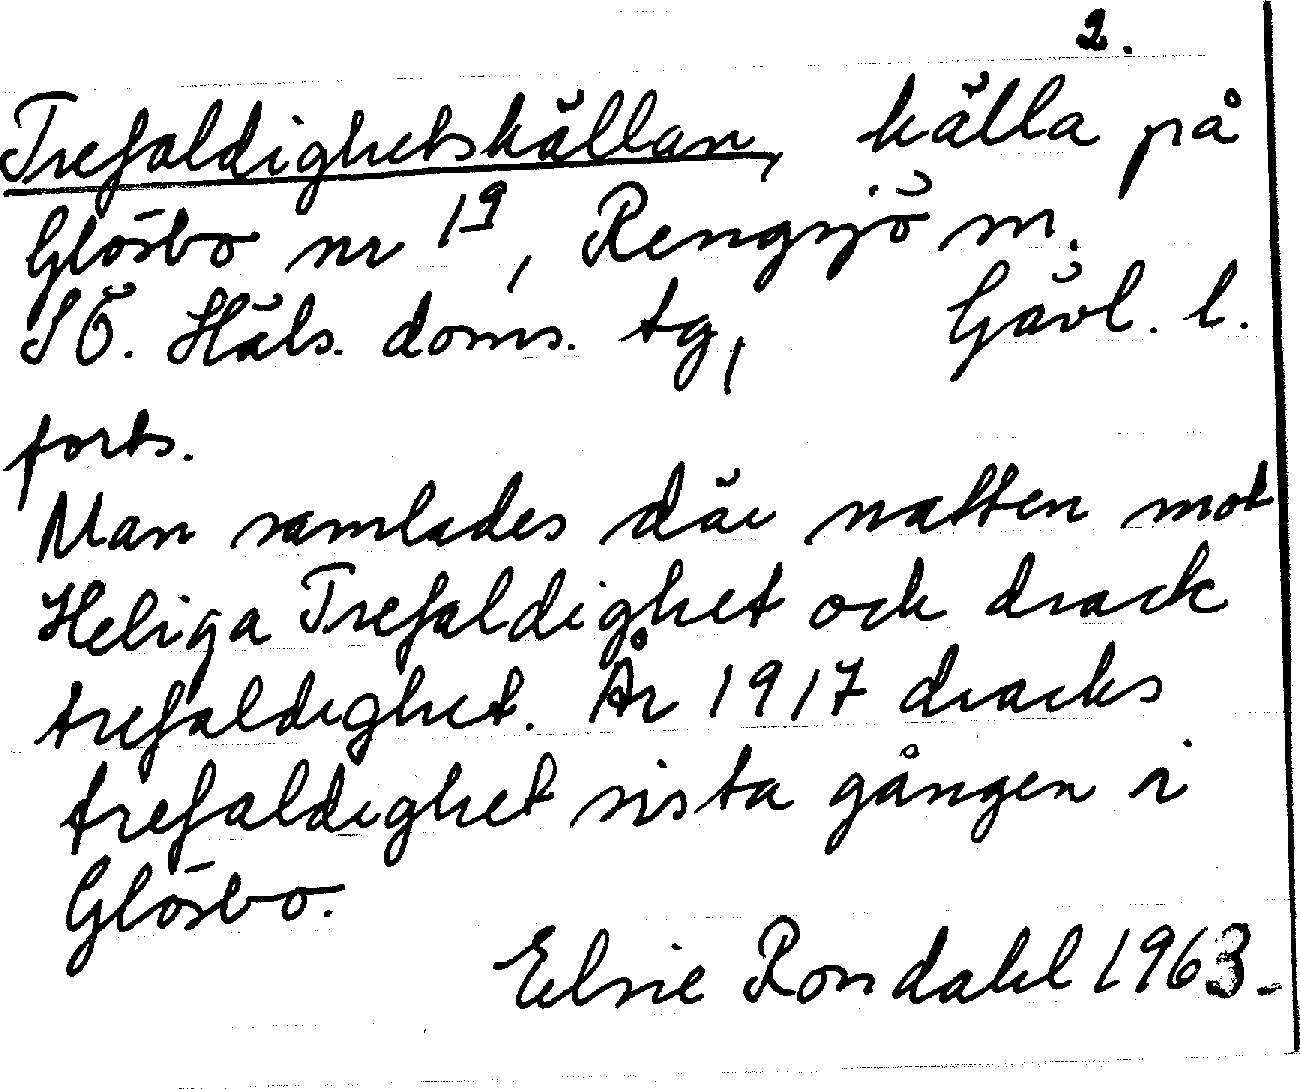 2.
Trefaldighetskällan, källa på
Glösbo nr 19, Rengsjö sn.
SÖ. Häls. doms. tg, Gävl. l.
forts.
Man samlades där natten mot
Heliga Trefaldighet och drack
trefaldighet. År 1917 dracks
trefaldighet sista gången i
Glösbo.
Elsie Rondahl 1963.